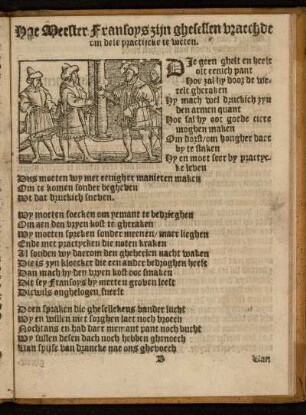 Hoe Meester Fransoys zijn ghesellen vraechde
om dese practijcke te weten.
Die geen ghelt en heeft
oft eenich pant
Hoe sal hy door de we-
relt gheraken
Hy mach wel druckich zijn
den armen quant
Hoe sal hy oot goede ciere
moghen maken
Om dorst/om hongher daer
by te slaken
Hy en moet seer by practyc-
ke leven
Dus moeten wy met eenigher manieren maken
Om te komen sonder begheven
Wt dat druckich sneven.
Wy moeten soecken om yemant te bedrieghen
Om aen den vryen kost te gheraken
Wy moeten spreken sonder meenen, maer lieghen
Ende met practycken die noten kraken
Al souden wy daerom den gheheelen nacht waken
Die is zyn kloecker die een ander bedroghen heeft
Dan mach hy den vryen kost ooc smaken
Dit sey Fransoys by metten groven leeft
Dicwils onghelogen sneeft
Doen spraken die ghesellekens vander lucht
Wy en willen niet sorghen laet noch vroech
Nochtans en had daer niemant pant noch bucht
Wy sullen desen dach noch hebben ghenoech
Van spijse van drancke nae ons ghevoech
B
Van